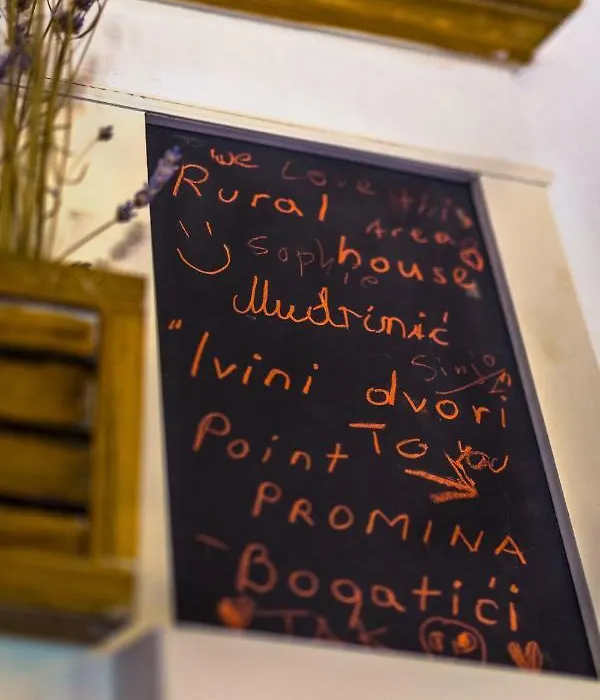 we Love this
Rural Area
Sophie house
Mudrinić
"Ivini dvori"
Point To you
PROMINA
- Bogatići